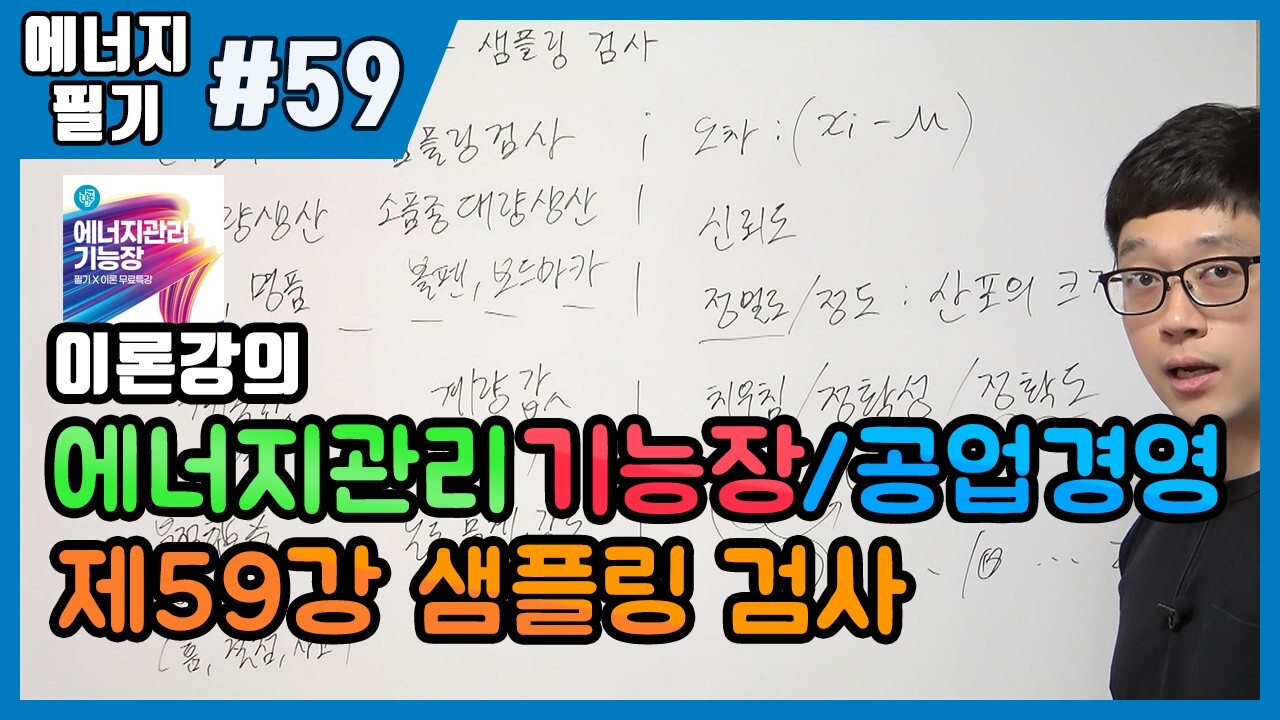 에너지
필기
#59
샘플링 검사
플링검사 오차 : (xi - μ)
량생산 소품종 대량생산 신뢰도
명품 볼펜, 보드마카 정밀도/정도 : 산포의 크기
에너지관리
기능장
필기 X 이론 무료특강
치우침/정확성/정확도
이론강의
에너지관리기능장/공업경영
제59강 샘플링 검사
(흠, 결점,